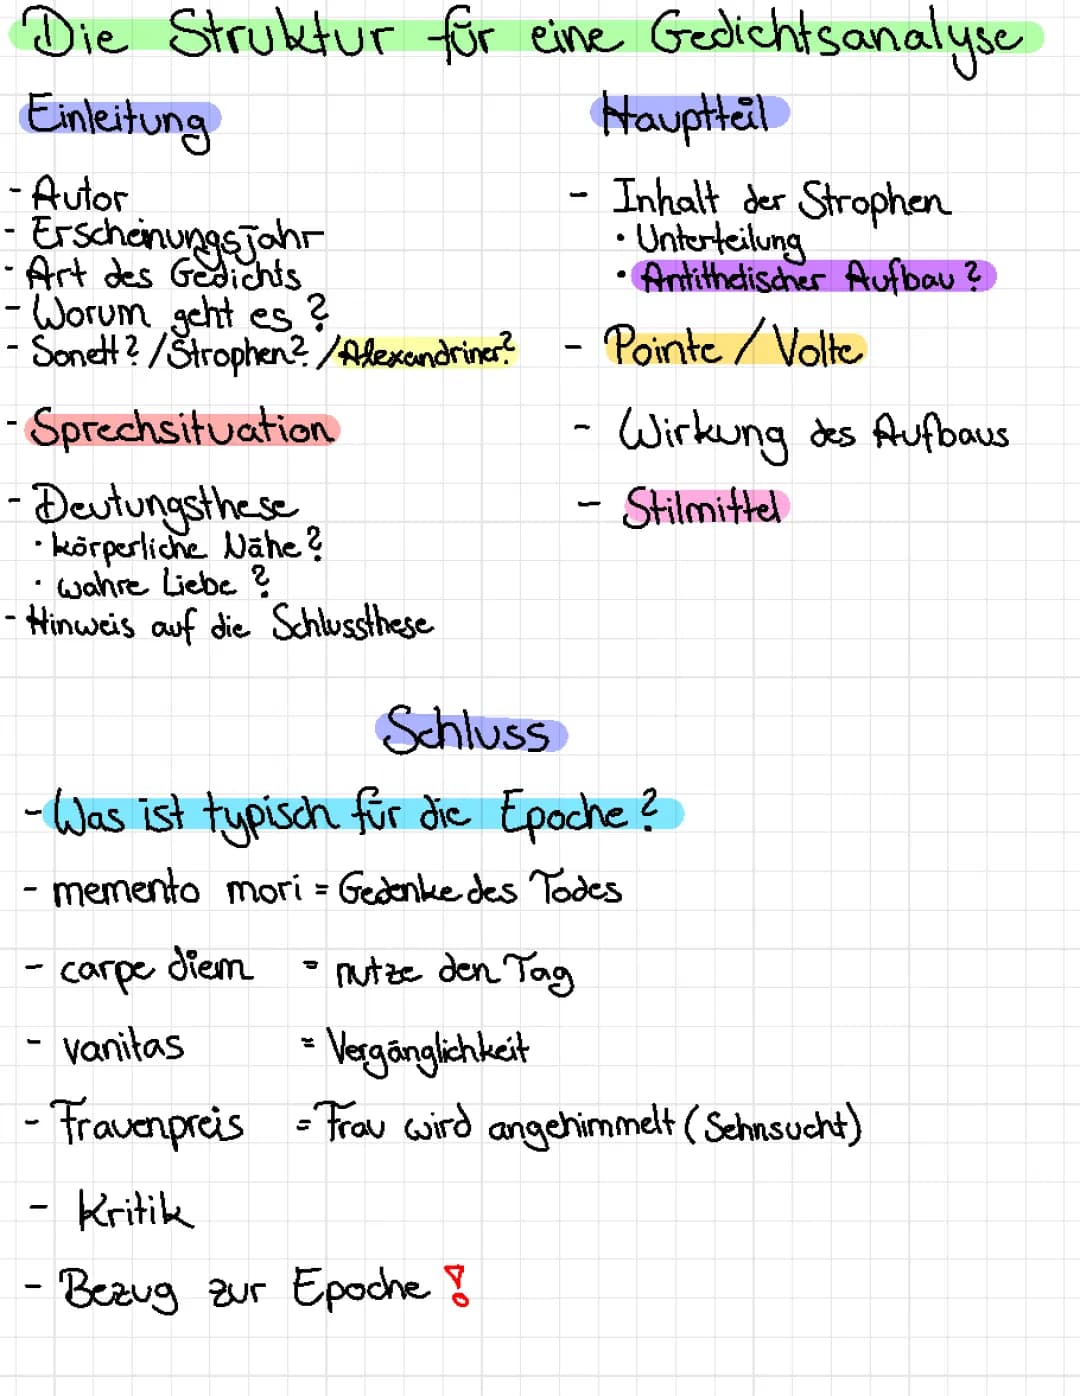 Die Struktur für eine Gedichtsanalyse
Einleitung
- Autor
- Erscheinungsjahr
- Art des Gedichts
- Worum geht es?
- Sonett? / Strophen? / Alexandriner?
- Sprechsituation
- Deutungsthese
· körperliche Nähe?
· wahre Liebe?
- Hinweis auf die Schlussthese
Hauptteil
- Inhalt der Strophen
· Unterteilung
· Antithetischer Aufbau?
- Pointe / Volte
- Wirkung des Aufbaus
- Stilmittel
Schluss
- Was ist typisch für die Epoche?
- memento mori = Gedenke des Todes
- carpe diem = nutze den Tag
- vanitas = Vergänglichkeit
- Frauenpreis = Frau wird angehimmelt (Sehnsucht)
- Kritik
- Bezug zur Epoche !